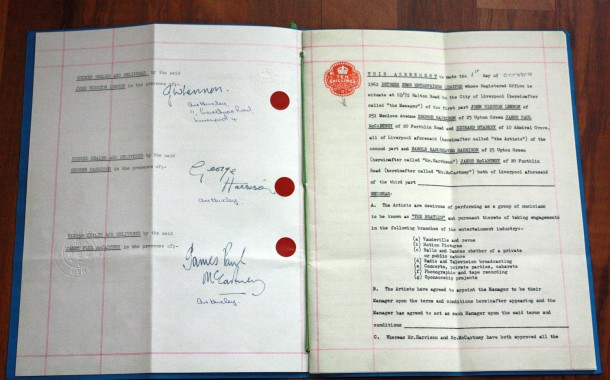 SIGNED SEALED AND DELIVERED by the said
JOHN WINSTON LENNON in the presence of:-
JWLennon.
Liverpool 4
SIGNED SEALED AND DELIVERED by the said
GEORGE HARRISON in the presence of:-
George
Harrison
SIGNED SEALED AND DELIVERED by the said
JAMES PAUL McCARTNEY in the presence of:-
James Paul
McCartney
TEN
SHILLINGS
THIS AGREEMENT is made the 1st day of October
1962 BETWEEN NEMS ENTERPRISES LIMITED whose Registered Office is
situate at 62/72 Walton Road in the City of Liverpool (hereinafter
called "the Manager") of the first part JOHN WINSTON LENNON of
251 Menlove Avenue GEORGE HARRISON of 25 Upton Green JAMES PAUL
McCARTNEY of 20 Forthlin Road and RICHARD STARKEY of 10 Admiral Grove,
all of Liverpool aforesaid (hereinafter called "the Artists") of the
second part and HAROLD HARGREAVES HARRISON of 25 Upton Green
(hereinafter called "Mr.Harrison") JAMES McCARTNEY of 20 Forthlin
Road (hereinafter called "Mr.McCartney") both of Liverpool aforesaid
of the third part
WHEREAS:
A. The Artists are desirous of performing as a group of musicians
to be known as "THE BEATLES" and pursuant thereto of taking engagements
in the following branches of the entertainment industry:-
(a) Vaudeville and revue
(b) Motion Pictures
(c) Balls and Dances whether of a private
or public nature
(d) Radio and Television broadcasting
(e) Concerts, private parties, cabarets
(f) Phonographic and tape recording
(g) Sponsorship projects
B. The Artists have agreed to appoint the Manager to be their
Manager upon the terms and conditions hereinafter appearing and the
Manager has agreed to act as such Manager upon the said terms and
conditions
C. Whereas Mr.Harrison and Mr.McCartney have both approved all the